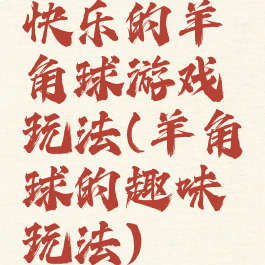 快乐的羊
角球游戏
玩法(羊角
球的趣味
玩法)